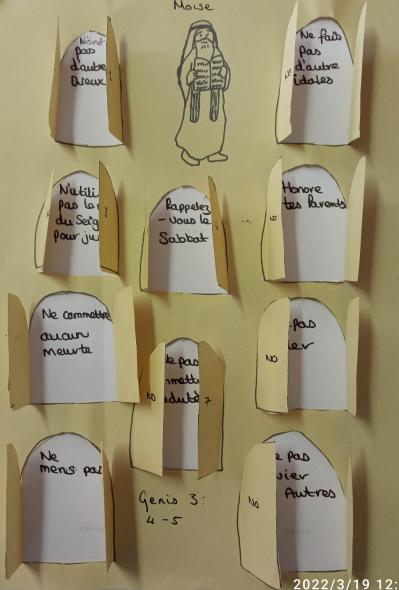 Moise
N'ont
pas
d'autre
Dieux
Ne fais
pas
d'autre
idoles
N'utili
pas le
du Seig
pour ju
Rappelez
-vous le
Sabbat
Honore
tes Parents
6
Ne commettre
aucun
meurte
NO
pas
mettr
7
NO
-pas
ler
Ne
mens pas
Genis 3:
4-5
NO
e pas
vier
Autres
2022/3/19 12: